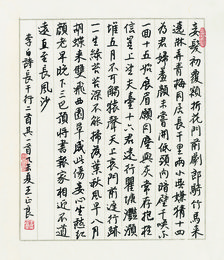 妾髮初覆額折花門前劇郎騎竹馬來
遶牀弄青梅同居長干里兩小無嫌猜十四
為君婦羞顏未嘗開低頭向暗壁千喚不
一回十五始展眉願同塵與灰常存抱柱
信豈上望夫臺十六君遠行瞿塘灩澦
堆五月不可觸猿聲天上哀門前遲行跡
一一生綠苔苔深不能掃落葉秋風早八月
胡蝶來雙飛西園草感此傷妾心坐愁紅
顏老早晚下三巴預將書報家相迎不道
遠直至長風沙
李白詩長干行二首其一 夏王正良